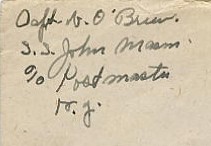 Capt. V. O'Brien.
S.S. John Mason.
c/o Postmaster
N.Y.